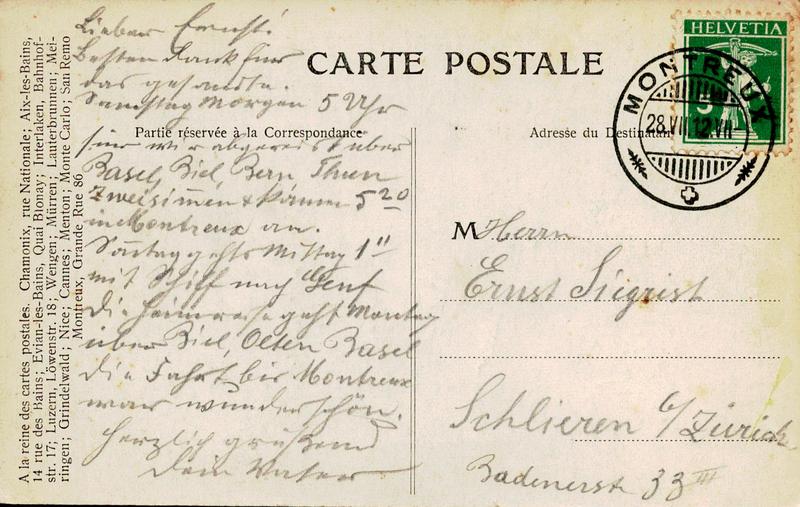 A la reine des cartes postales. Chamonix, rue Nationale; Aix-les-Bains,
14 rue des Bains; Evian-les-Bains, Quai Bronay; Interlaken, Bahnhof-
str. 17; Luzern, Löwenstr. 18; Wengen; Mürren; Lauterbrunnen; Mei-
ringen; Grindelwald; Nice; Cannes; Menton; Monte Carlo; San Remo
Montreux, Grande Rue 86
Lieber Ernst!
Besten Dank für
das gesandte.
Samstag Morgen 5 Uhr
sind wir abgereist über
Basel, Biel, Bern, Thun
Zweisimmen & kamen 5 20
in Montreux an.
Sontag gehts Mittag 1"
mit Schiff nach Genf
die Heimreise geht Montag
über Biel, Olten Basel
die Fahrt bis Montreux
war wunderschön.
Herzlich grüßend
Dein Vater
CARTE POSTALE
Partie réservée à la Correspondance
Adresse du Destinatair
HELVETIA
5
MONTREUX
28.VII.12.VII
M Herrn
Ernst Siegrist
Schlieren b/Zürich
Badenerstr 33 III